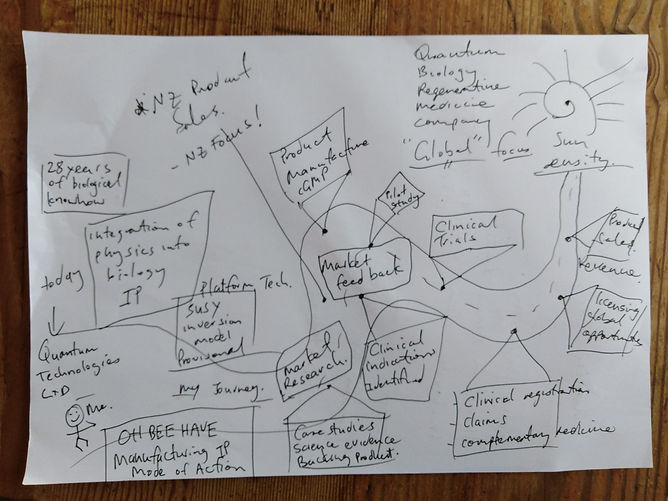 * NZ Product
Sales.
- NZ Focus!
Quantum
Biology
Regenerative
medicine
company
"Global" focus
Sun
density
28 years
of biological
knowhow
Product
Manufacture
cGMP
Pilot
study
integration of
physics into
biology
IP
today
Clinical
Trials
Market
feed back
Product
Sales.
revenue.
Platform Tech.
SUSY
inversion
model
Provisional
licensing/
global
opportunities
Quantum
Technologies
LTD
Market
Research.
Clinical
indications
Identified
my Journey.
Me.
OH BEE HAVE
Manufacturing IP
Mode of Action
Case studies
Science evidence
Backing Product.
- Clinical registration
- Claims
- complementary medicine